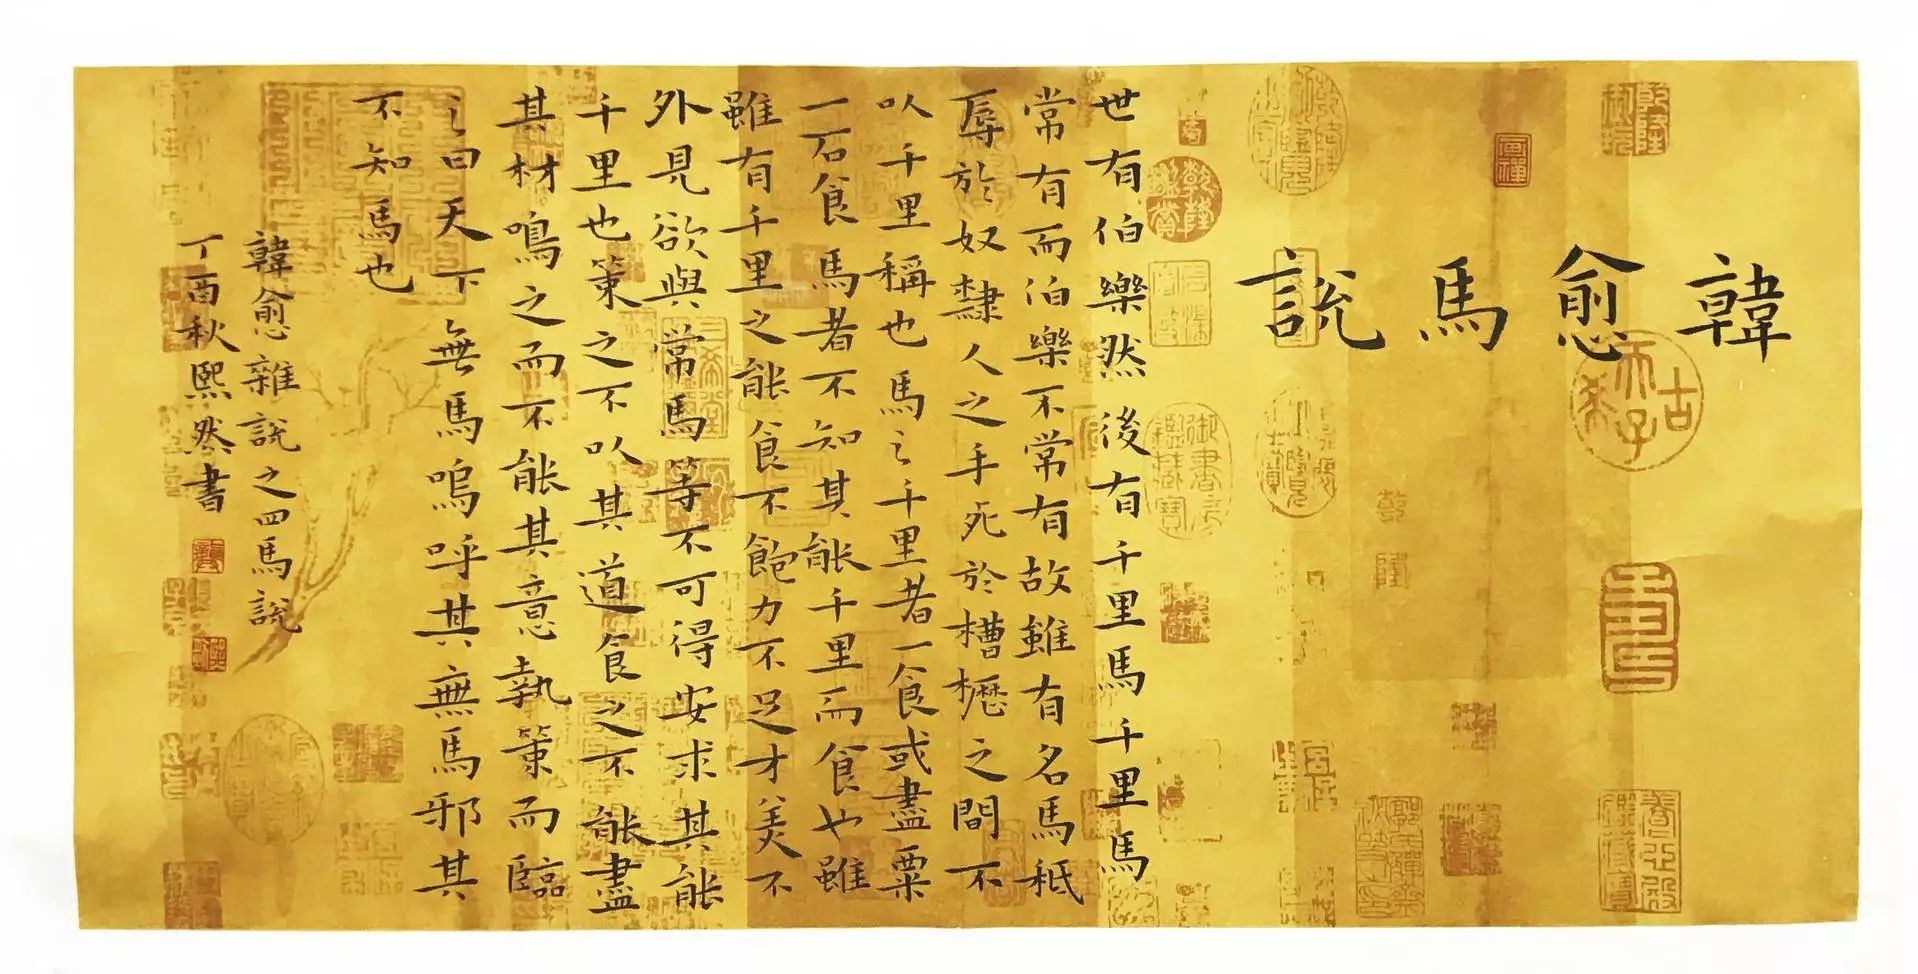 韓愈馬說
世有伯樂然後有千里馬千里馬
常有而伯樂不常有故雖有名馬秖
辱於奴隸人之手死於槽櫪之間不
以千里稱也馬之千里者一食或盡粟
一石食馬者不知其能千里而食也雖
雖有千里之能食不飽力不足才美不
外見欲與常馬等不可得安求其能
千里也策之不以其道食之不能盡
其材鳴之而不能其意執策而臨
之曰天下無馬嗚呼其無馬邪其
不知馬也
韓愈雜說之四馬說
丁酉秋熙然書
古希天子
乾隆
畫禪
乾隆鑑賞